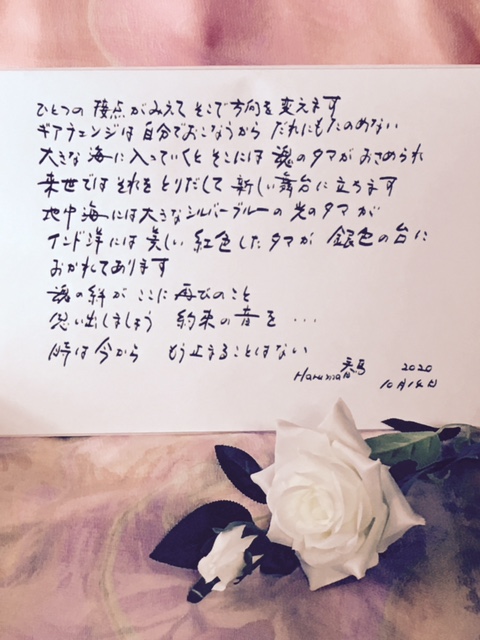 ひとつの 接点がみえて そこで方向を変えます
ギアチェンジは自分でおこなうから だれにもたのめない
大きな海に入っていくと そこには 魂のタマが おさめられ
来世では それをとりだして 新しい舞台に立ちます
地中海には大きなシルバーブルーの光のタマが
インド洋には美しい紅色したタマが 銀色の台に
おかれてあります
魂の絆が ここに再びのこと
思い出しましょう 約束の音を ・・・
時は今から もう止まることはない
Haruma 春馬 2020
10月18日